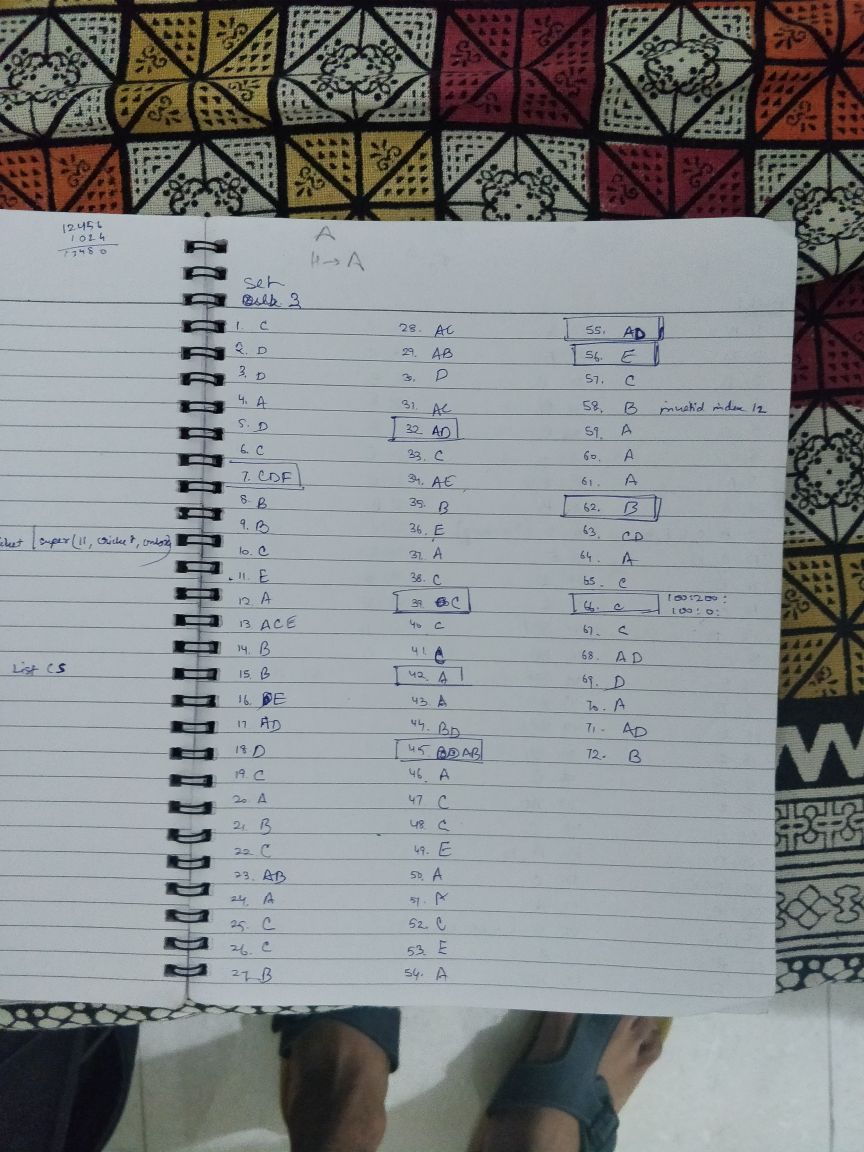 12456
1024
13480
A
H→A
Set
3
1. C
2. D
3. D
4. A
5. D
6. C
7. CDF
8. B
9. B
10. C
11. E
12. A
13 ACE
14. B
15. B
16. E
17 AD
18 D
19. C
20. A
21. B
22 C
23. AB
24. A
25. C
26. C
27. B
28. AC
29. AB
30. D
31. AC
32. AD
33. C
34. AE
35. B
36. E
37. A
38. C
39. C
40. C
41. C
42. A
43. A
44. BD
45. AB
46. A
47 C
48. C
49. E
50. A
51. A
52. C
53. E
54. A
55. AD
56. E
57. C
58. B invalid index 12
59. A
60. A
61. A
62. B
63. CD
64. A
65. C
66. C 100:200:
100:0:
67. C
68. AD
69. D
70. A
71. AD
72. B
super(11, cricket,
List CS